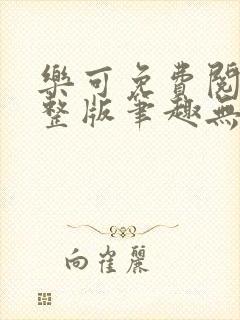 樂可免費閱
整版筆趣無
向崔麗